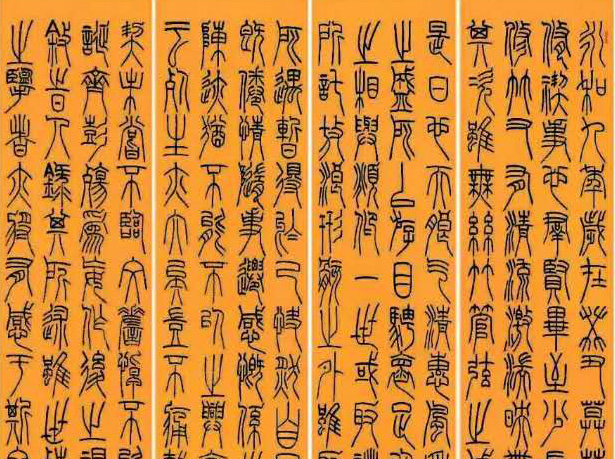 永和九年歲在癸丑莫春
脩禊事也群賢畢至少長
脩竹又有清流激湍映帶
其次雖無絲竹管弦之
是日也天朗气清惠風
之盛所以游目騁懷足以
之相與俯仰一世或取諸
所託放浪形骸之外雖
所遇暫得於己快然自足
既倦情隨事遷感慨係之
陳迹猶不能不以之興懷
云死生亦大矣豈不痛哉
契未嘗不臨文嗟悼不能
誕齊彭殤爲妄作後之視
敘時人錄其所述雖世殊
之攬者亦將有感于斯文